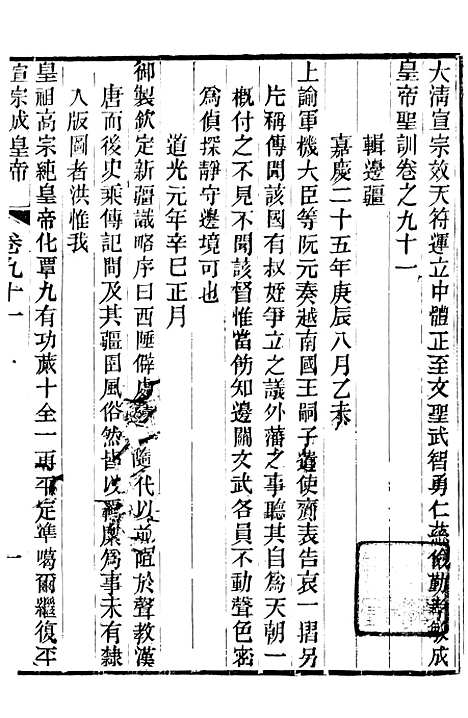 大清宣宗效天符運立中體正至文聖武智勇仁慈儉勤孝敏成
皇帝聖訓卷之九十一
輯邊疆
嘉慶二十五年庚辰八月乙未
上諭軍機大臣等阮元奏越南國王嗣子遣使齎表告哀一摺另
片稱傳聞該國有叔姪爭立之議外藩之事聽其自為天朝一
概付之不見不聞該督惟當飭知邊關文武各員不動聲色密
為偵探靜守邊境可也
道光元年辛巳正月
御製欽定新疆識略序曰西陲僻處 隨代以前阻於聲教漢
唐而後史乘傳記間及其疆圉風俗然皆以羈縻為事未有隸
入版圖者洪惟我
皇祖高宗純皇帝化覃九有功蕆十全一再平定準噶爾繼復平
宣宗成皇帝 卷九十一 一